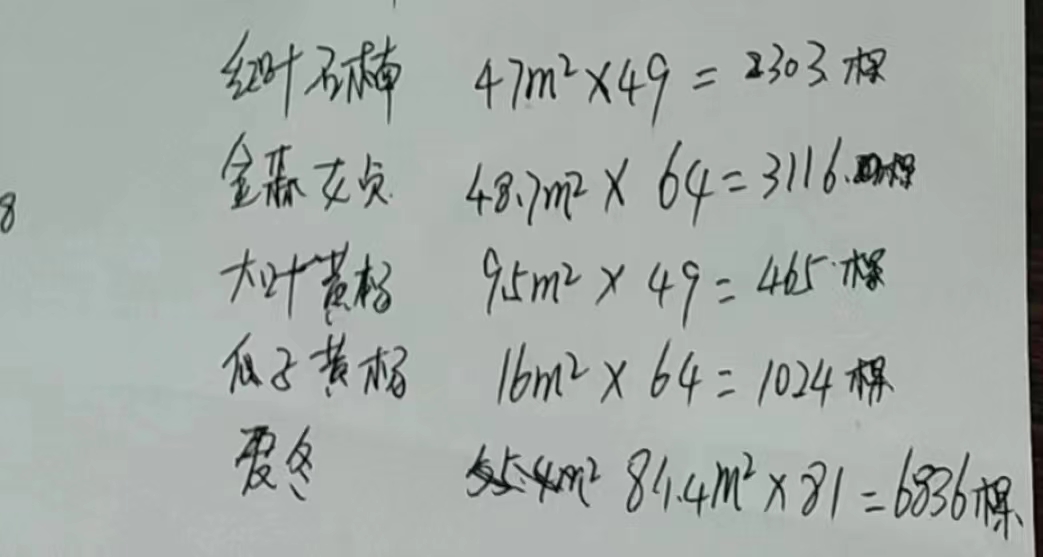 红叶石楠 47m²×49=2303棵
8
金森女贞 48.7m²×64=3116棵
大叶黄杨 9.5m²×49=465棵
瓜子黄杨 16m²×64=1024棵
麦冬 84.4m²×81=6836棵